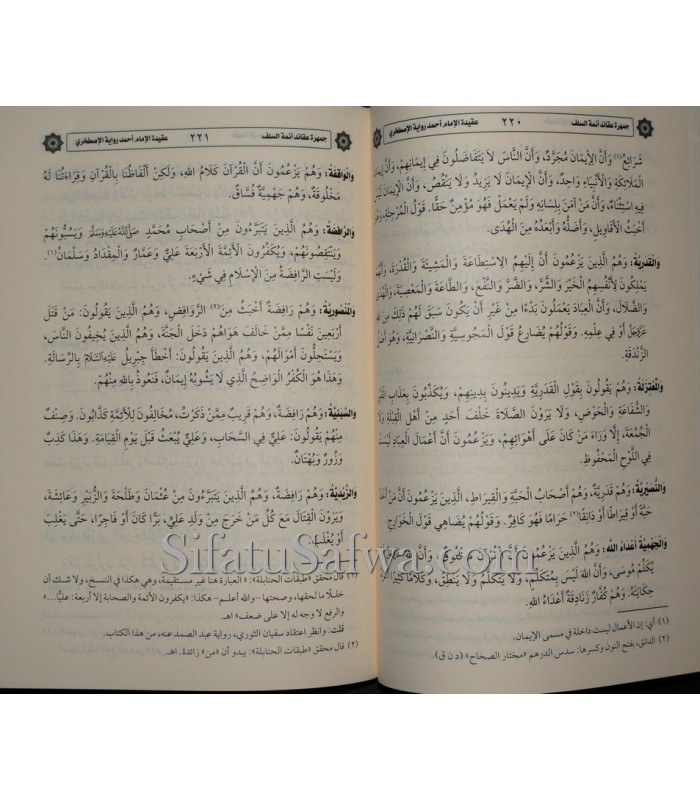 جمهرة عقائد أئمة السلف
٢٢٠
عقيدة الإمام أحمد رواية الإصطخري
شَرَائِعُ(١) وَأَنَّ الْإِيمَانَ مُجَرَّدٌ، وَأَنَّ النَّاسَ لَا يَتَفَاضَلُونَ فِي إِيمَانِهِمْ، وَأَنَّ
الْمَلَائِكَةِ وَالْأَنْبِيَاءِ وَاحِدٌ، وَأَنَّ الْإِيمَانَ لَا يَزِيدُ وَلَا يَنْقُصُ، وَأَنَّ الْإِيمَانَ لَيْسَ
فِيهِ اسْتِثْنَاءٌ، وَأَنَّ مَنْ آمَنَ بِلِسَانِهِ وَلَمْ يَعْمَلْ فَهُوَ مُؤْمِنٌ حَقًّا. قَوْلُ الْمُرْجِئَةِ،
أَخْبَثُ الْأَقَاوِيلِ، وَأَضَلُّهُ وَأَبْعَدُهُ مِنَ الْهُدَى.
وَالْقَدَرِيَّةُ: وَهُمُ الَّذِينَ يَزْعُمُونَ أَنَّ إِلَيْهِمُ الِاسْتِطَاعَةَ وَالْمَشِيئَةَ وَالْقُدْرَةَ،
يَمْلِكُونَ لِأَنْفُسِهِمُ الْخَيْرَ وَالشَّرَّ، وَالضَّرَّ وَالنَّفْعَ، وَالطَّاعَةَ وَالْمَعْصِيَةَ، وَالْهُدَى
وَالضَّلَالَ، وَأَنَّ الْعِبَادَ يَعْمَلُونَ بَدْءًا مِنْ غَيْرِ أَنْ يَكُونَ سَبَقَ لَهُمْ ذَلِكَ مِنَ اللهِ
عَزَّوَجَلَّ أَوْ فِي عِلْمِهِ. وَقَوْلُهُمْ يُضَارِعُ قَوْلَ الْمَجُوسِيَّةِ وَالنَّصْرَانِيَّةِ، وَهُوَ أَصْلُ
الزَّنْدَقَةِ.
وَالْمُعْتَزِلَةُ: وَهُمْ يَقُولُونَ بِقَوْلِ الْقَدَرِيَّةِ وَيَدِينُونَ بِدِينِهِمْ، وَيُكَذِّبُونَ بِعَذَابِ الْقَبْرِ
وَالشَّفَاعَةِ وَالْحَوْضِ، وَلَا يَرَوْنَ الصَّلَاةَ خَلْفَ أَحَدٍ مِنْ أَهْلِ الْقِبْلَةِ وَلَا
الْجُمُعَةَ، إِلَّا وَرَاءَ مَنْ كَانَ عَلَى أَهْوَائِهِمْ، وَيَزْعُمُونَ أَنَّ أَعْمَالَ الْعِبَادِ لَيْسَتْ
فِي اللَّوْحِ الْمَحْفُوظِ.
وَالنُّصَيْرِيَّةُ: وَهُمْ قَدَرِيَّةٌ، وَهُمْ أَصْحَابُ الْحَبَّةِ وَالْقِيرَاطِ، الَّذِينَ يَزْعُمُونَ أَنَّ مَنْ أَخَذَ
حَبَّةً أَوْ قِيرَاطًا أَوْ دَانِقًا(٢) حَرَامًا فَهُوَ كَافِرٌ. وَقَوْلُهُمْ يُضَاهِي قَوْلَ الْخَوَارِجِ.
وَالْجَهْمِيَّةُ أَعْدَاءُ اللهِ: وَهُمُ الَّذِينَ يَزْعُمُونَ أَنَّ الْقُرْآنَ مَخْلُوقٌ، وَأَنَّ اللهَ عَزَّوَجَلَّ لَمْ
يُكَلِّمْ مُوسَى، وَأَنَّ اللهَ لَيْسَ بِمُتَكَلِّمٍ، وَلَا يَتَكَلَّمُ وَلَا يَنْطِقُ، وَكَلَامًا كَثِيرًا أَكْرَهُ
حِكَايَتَهُ. وَهُمْ كُفَّارٌ زَنَادِقَةٌ أَعْدَاءُ اللهِ.
(١) أي: إن الأعمال ليست داخلة في مسمى الإيمان.
(٢) الدانق، بفتح النون وكسرها: سدس الدرهم «مختار الصحاح» (د ن ق).
جمهرة عقائد أئمة السلف
٢٢١
عقيدة الإمام أحمد رواية الإصطخري
وَالْوَاقِفَةُ: وَهُمْ يَزْعُمُونَ أَنَّ الْقُرْآنَ كَلَامُ اللهِ، وَلَكِنْ أَلْفَاظُنَا بِالْقُرْآنِ وَقِرَاءَتُنَا لَهُ
مَخْلُوقَةٌ، وَهُمْ جَهْمِيَّةٌ فُسَّاقٌ.
وَالرَّافِضَةُ: وَهُمُ الَّذِينَ يَتَبَرَّءُونَ مِنْ أَصْحَابِ مُحَمَّدٍ صَلَّى اللهُ عَلَيْهِ وَسَلَّمَ وَيَسُبُّونَهُمْ
وَيَنْتَقِصُونَهُمْ، وَيُكَفِّرُونَ الْأَئِمَّةَ الْأَرْبَعَةَ عَلِيٌّ وَعَمَّارٌ وَالْمِقْدَادُ وَسَلْمَانُ(١).
وَلَيْسَتِ الرَّافِضَةُ مِنَ الْإِسْلَامِ فِي شَيْءٍ.
وَالْمَنْصُورِيَّةُ: وَهُمْ رَافِضَةٌ أَخْبَثُ مِنَ(٢) الرَّوَافِضِ، وَهُمُ الَّذِينَ يَقُولُونَ: مَنْ قَتَلَ
أَرْبَعِينَ نَفْسًا مِمَّنْ خَالَفَ هَوَاهُمْ دَخَلَ الْجَنَّةَ، وَهُمُ الَّذِينَ يُخِيفُونَ النَّاسَ،
وَيَسْتَحِلُّونَ أَمْوَالَهُمْ، وَهُمُ الَّذِينَ يَقُولُونَ: أَخْطَأَ جِبْرِيلُ عَلَيْهِ السَّلَامُ بِالرِّسَالَةِ.
وَهَذَا هُوَ الْكُفْرُ الْوَاضِحُ الَّذِي لَا يَشُوبُهُ إِيمَانٌ، فَنَعُوذُ بِاللهِ مِنْهُمْ.
وَالسَّبَئِيَّةُ: وَهُمْ رَافِضَةٌ، وَهُمْ قَرِيبٌ مِمَّنْ ذَكَرْتُ، مُخَالِفُونَ لِلْأَئِمَّةِ كَذَّابُونَ. وَصِنْفٌ
مِنْهُمْ يَقُولُونَ: عَلِيٌّ فِي السَّحَابِ، وَعَلِيٌّ يُبْعَثُ قَبْلَ يَوْمِ الْقِيَامَةِ. وَهَذَا كَذِبٌ
وَزُورٌ وَبُهْتَانٌ.
وَالزَّيْدِيَّةُ: وَهُمْ رَافِضَةٌ، وَهُمُ الَّذِينَ يَتَبَرَّءُونَ مِنْ عُثْمَانَ وَطَلْحَةَ وَالزُّبَيْرِ وَعَائِشَةَ،
وَيَرَوْنَ الْقِتَالَ مَعَ كُلِّ مَنْ خَرَجَ مِنْ وَلَدِ عَلِيٍّ، بَرًّا كَانَ أَوْ فَاجِرًا، حَتَّى يَغْلِبَ
أَوْ يُغْلَبَ.
(١) قال محقق «طبقات الحنابلة»: العبارة هنا غير مستقيمة، وهي هكذا في النسخ، ولا شك أن
خللًا ما لحقها، وصحتها -والله أعلم- هكذا: «يكفرون الأئمة والصحابة إلا أربعة: عليًّا...»
والرفع لا وجه له إلا على ضعف» اهـ.
قلت: وانظر اعتقاد سفيان الثوري، رواية عبد الصمد عنه، من هذا الكتاب.
(٢) قال محقق «طبقات الحنابلة»: يبدو أن «من» زائدة. اهـ.
SifatuSafwa.com